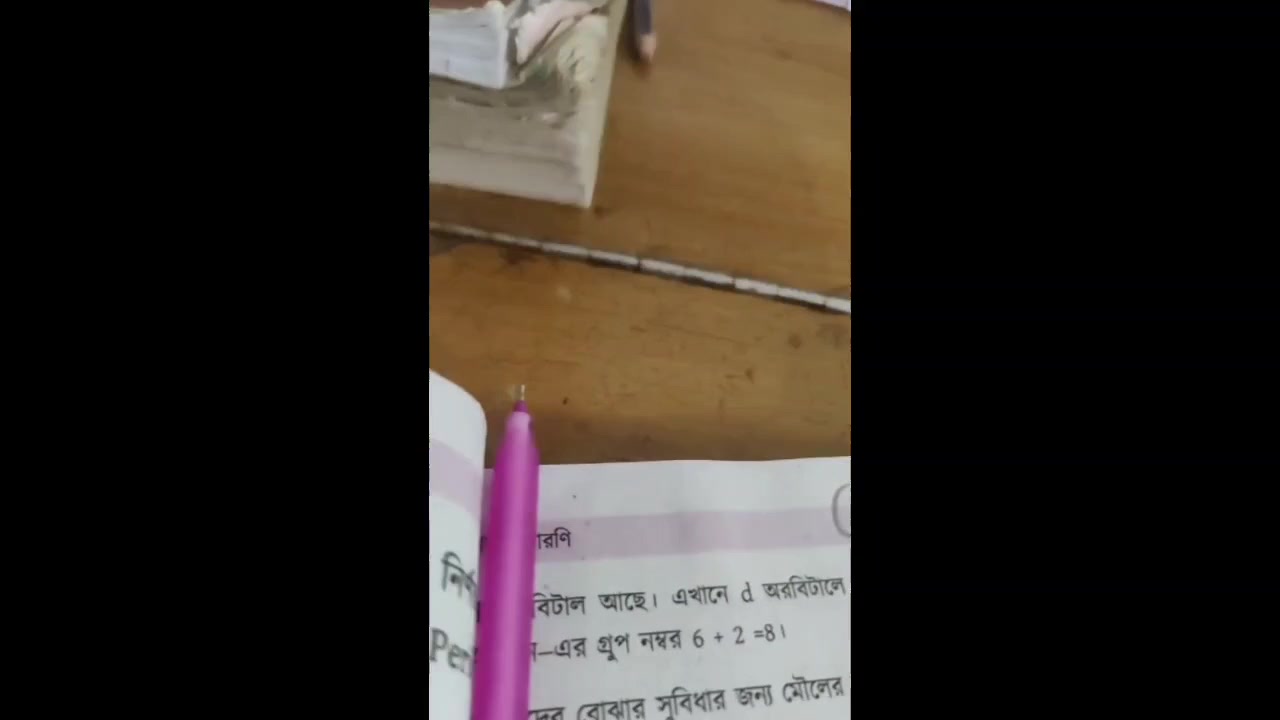 বিটাল আছে। এখানে d অরবিটালে
–এর গ্রুপ নম্বর 6 + 2 =8।
বোঝার সুবিধার জন্য মৌলের